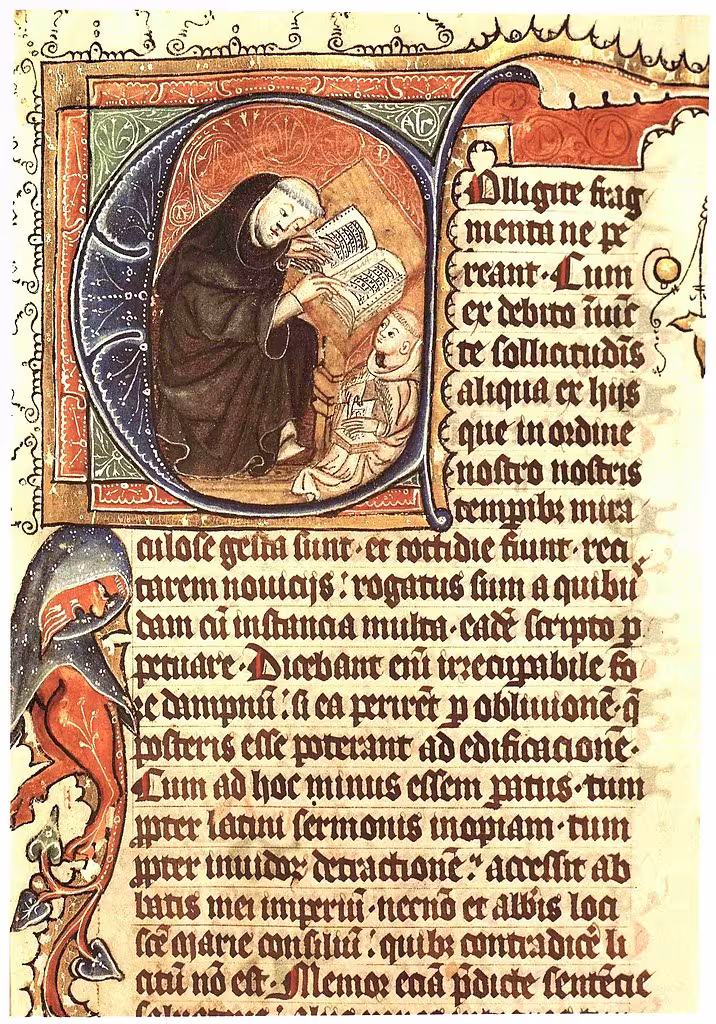 COlligite frag
menta ne pe
reant · Cum
ex debito īiūc
te sollicitudīs
aliqua ex hijs
que in ordine
nostro nostris
temꝑibꝫ mira
culose gesta sunt · et cottidie fiunt · reci
tarem nouicijs : rogatus sum a quibus
dam cū instancia multa · eadē scripto ꝑ
petuare · Dicebant enī irrecuꝑabile fo
re dampnū : si ea perirēt ꝑ obliuionē · q̄
posteris esse poterant ad edificacionē ·
Cum ad hoc minus essem ꝑatus · tum
ꝓpter latini sermonis inopiam · tum
ꝓpter inuidoꝝ detractionē : accessit ab
batis mei imperiū · necnō et abb̄is loci
scē marie consiliū : quibꝫ contradicē li
citū nō est · Memor eciā p̄dicte sentēcie